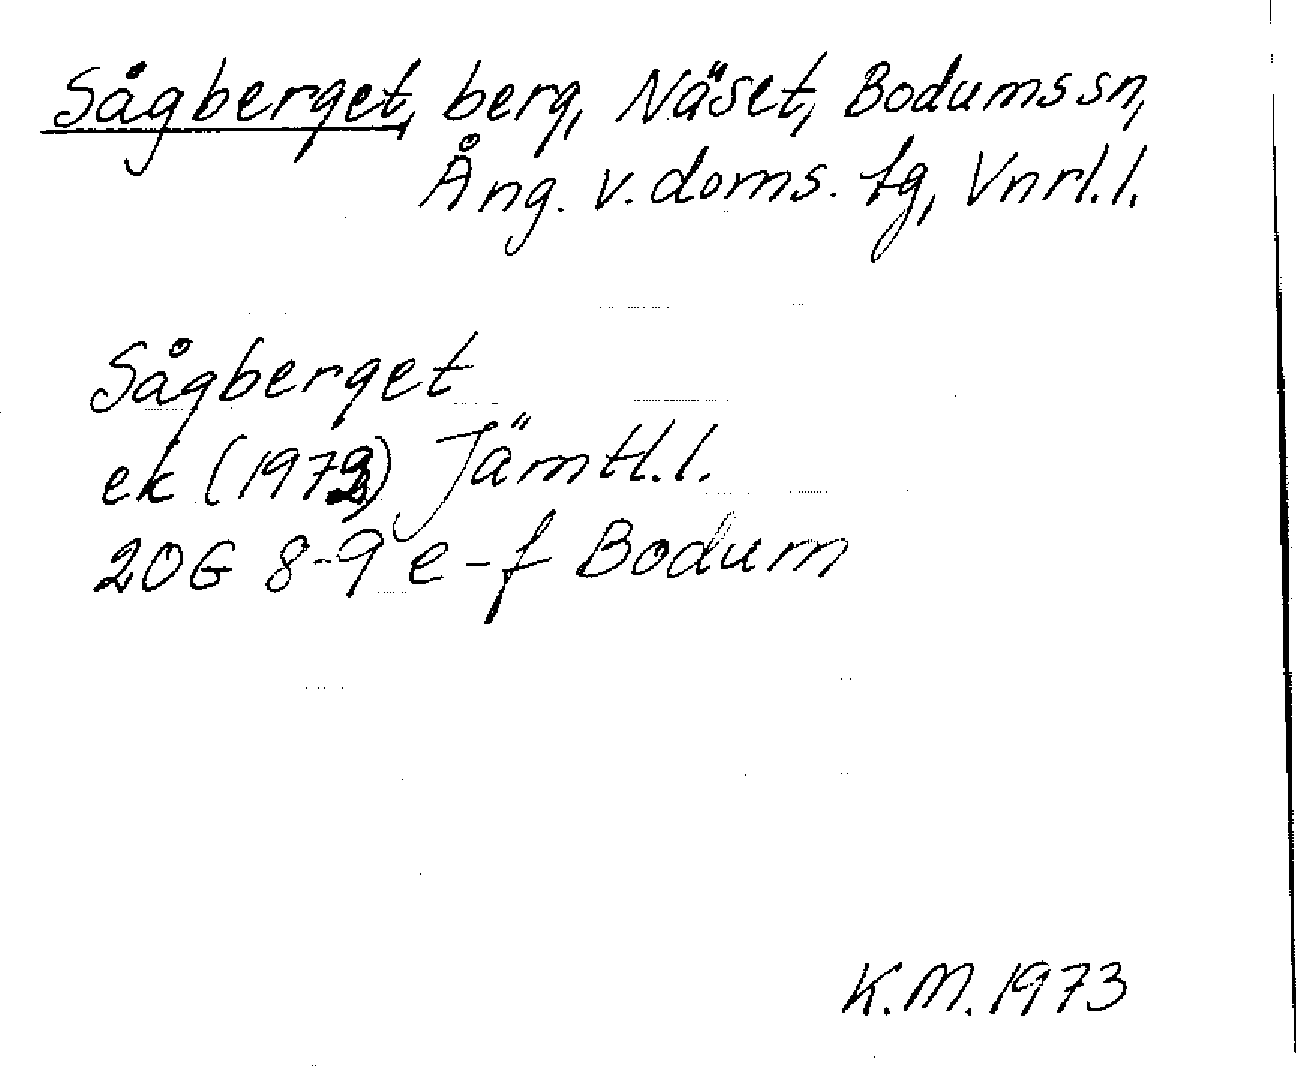 Sågberget, berg, Näset, Bodums sn,
Ång. v. doms. tg, Vnrl. l.
Sågberget
ek (1972) Jämtl. l.
20G 8-9 e-f Bodum
K.M. 1973